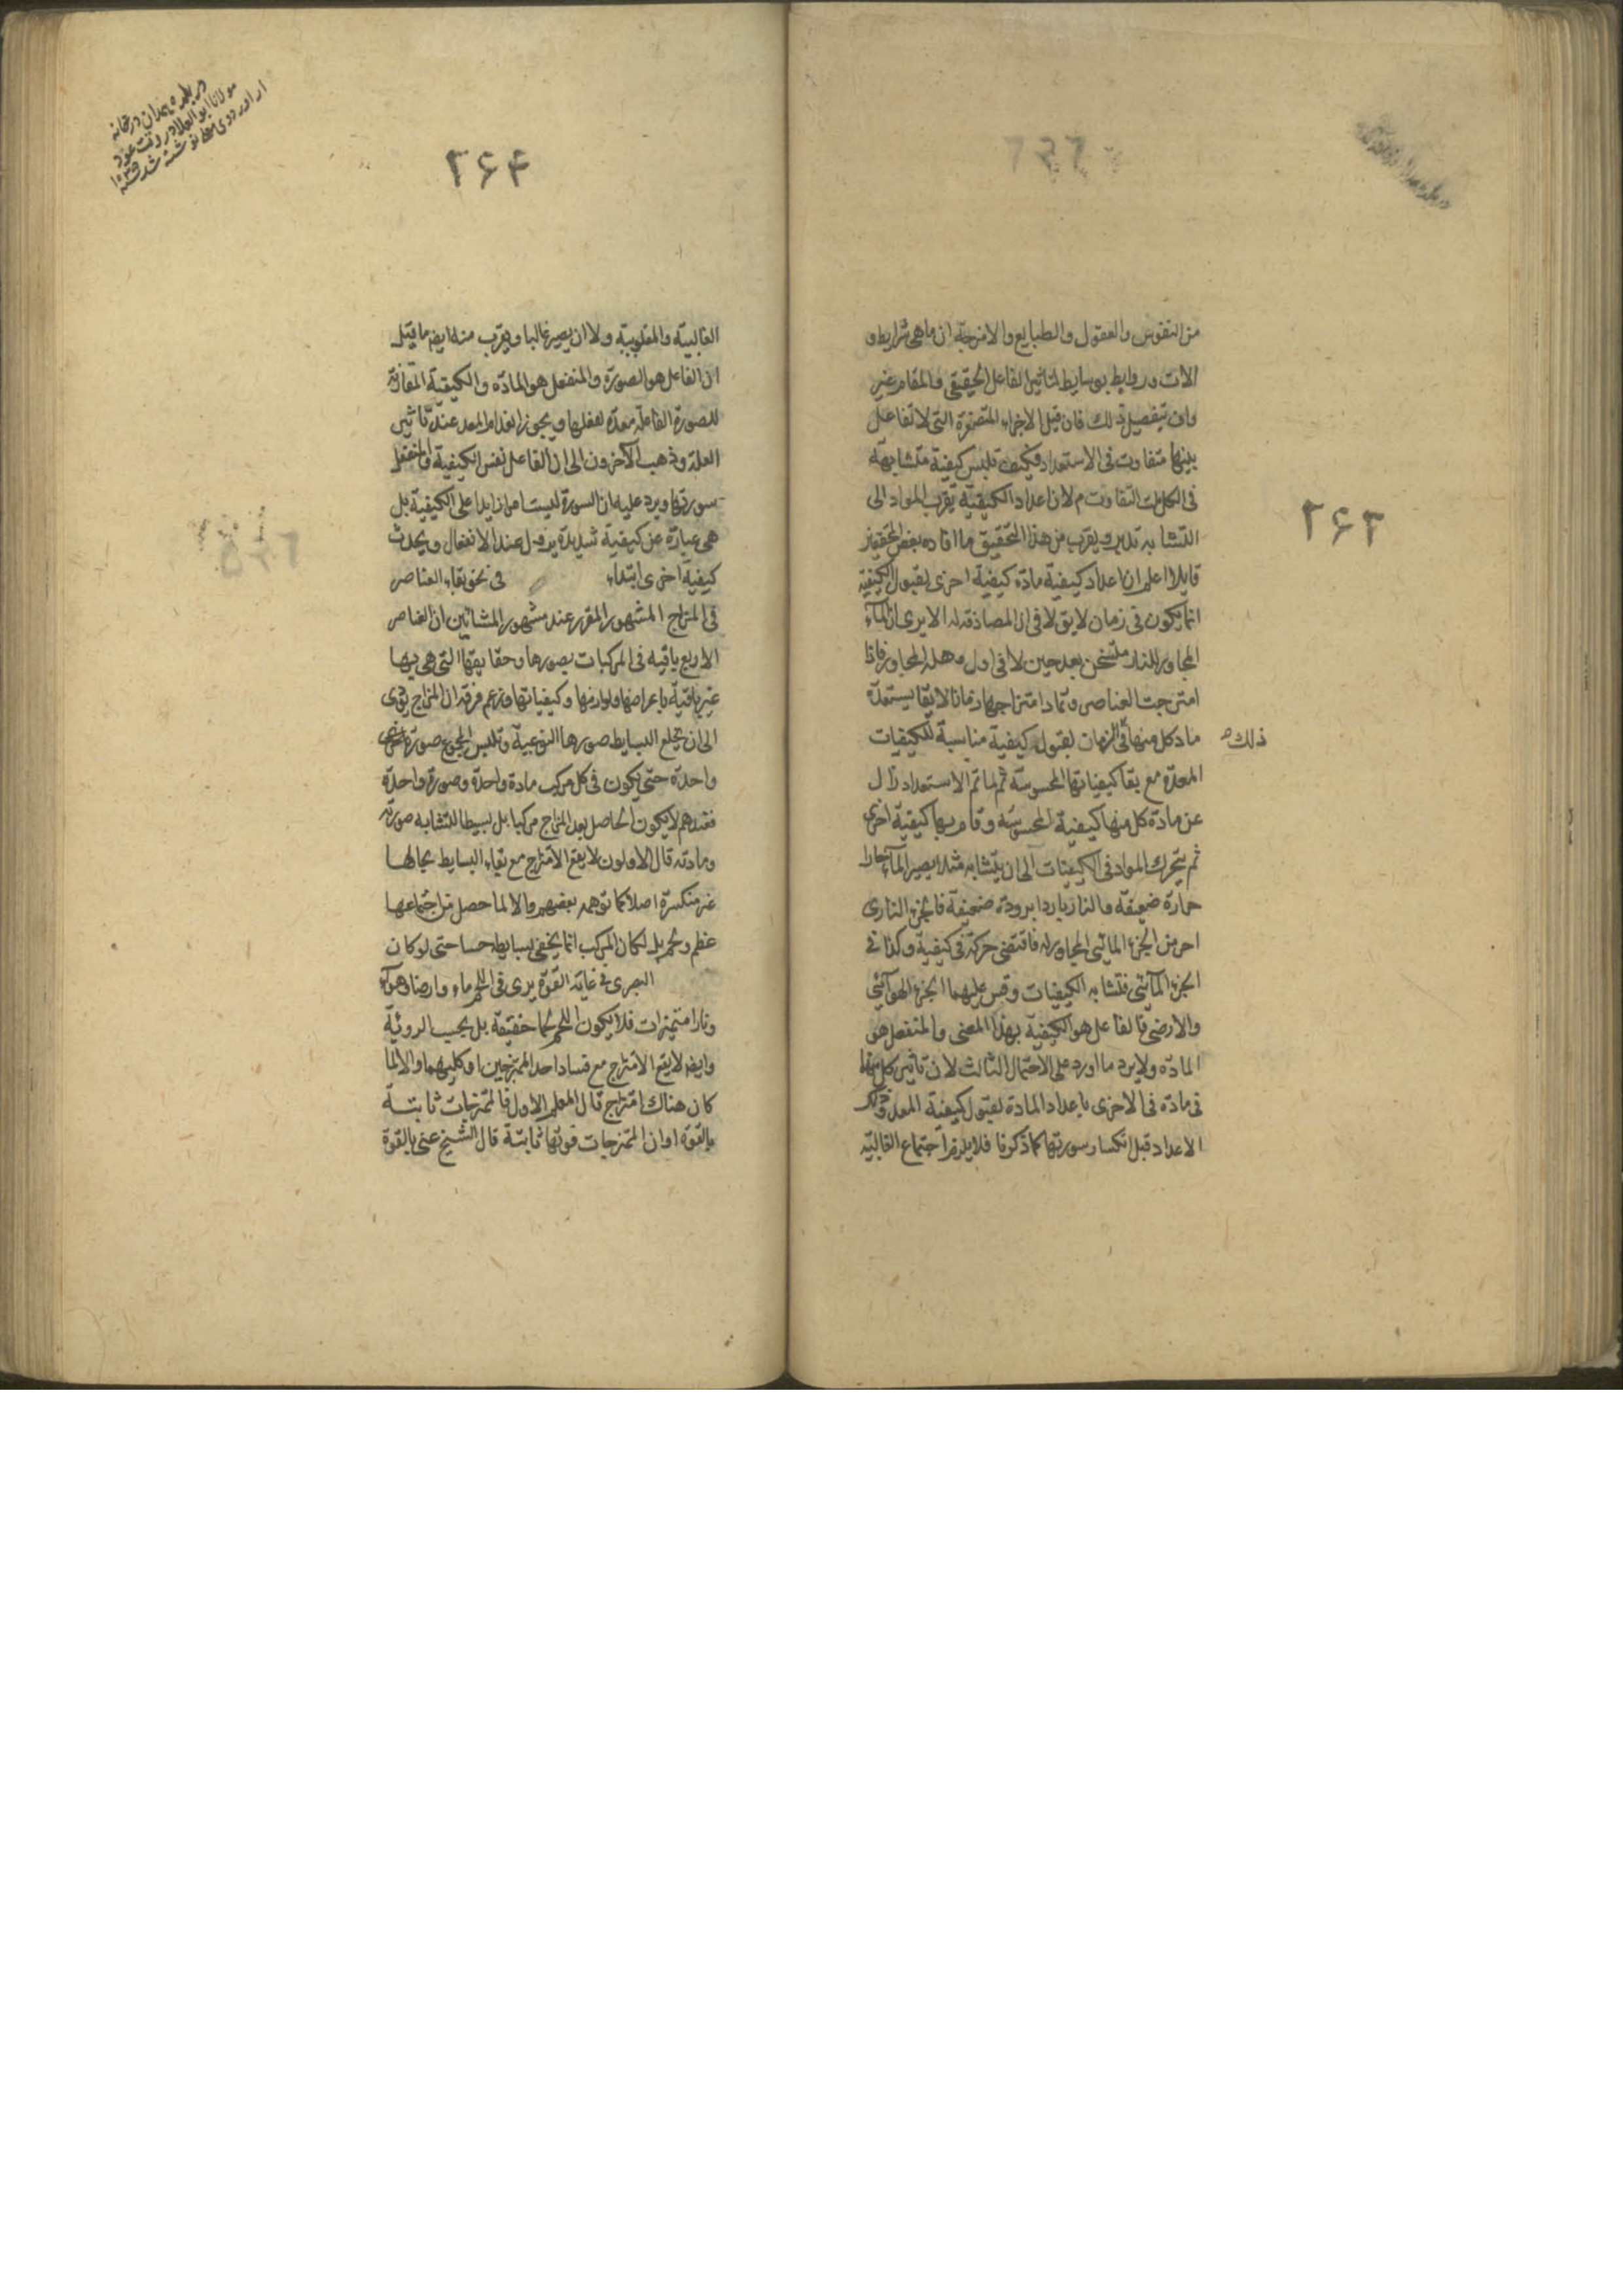 ٢۶٣
من النفوس والعقول والطبايع والامزجة ان ما هى شرايط و
الات وروابط بوسايط لتاثير الفاعل الحقيقى والمقام غير
واف بتفصيل ذلك فان قيل الاجزاء المتصغرة التى لا تفاعل
بينها متفاوت فى الاستعداد فكيف تلبس كيفية متشابهة
فى الكل قلت التفاوت م لان اعداد الكيفية يقرب المواد الى
التشابه تدبر ويقرب من هذا التحقيق ما افاده بعض المحققين
قايلا اعلم ان اعداد كيفية مادة كيفية اخرى لقبول الكيفية
انما يكون فى زمان لايق لا فى ان المصادقة له الا يرى ان الماء
المجاور للنار متسخن بعد حين لا فى اول وهلة المجاورة فاذا
امتزجت العناصر وتماد امتزاجها زمانا لايقا يستعد
ماد كل منها فى الزمان لقبول كيفية مناسبة للكيفيات
ذلك
المعدة مع بقا كيفياتها المحسوسة ثم لما تم الاستعداد زال
عن مادة كل منها كيفية المحسوسة وقام بها كيفية اخرى
ثم يتحرك المواد فى الكيفيات الى ان يتشابه مثلا يصير الماء حارا
حرارة ضعيفة والنار باردا برودة ضعيفة فالجزء النارى
احر من الجزء المائى المجاور له فاقتضى حركة فى كيفية وكذا فى
الجزء المآئى فتشابه الكيفيات وقس عليهما الجزء الهوآئى
والارضى فالفاعل هو الكيفية بهذا المعنى والمنفعل هو
المادة ولا يرد ما اورد على الاحتمال الثالث لان تاثير كل منها
فى مادة فى الاخرى باعداد المادة لقبول كيفية المعد وذلك
الاعداد قبل انكسار سورتها كما ذكرنا فلا يلزم اجتماع الغالبية
در بلده همدان درخانه
مولانا ابوالعلا در وقت عود
از اوردوى معلى نوشته شد سنة
٢۶۴
الغالبية والمغلوبية ولا ان يصير غالبا ويقرب منه ايضا ما قيل
ان الفاعل هو الصورة والمنفعل هو المادة والكيفية المقارنة
للصورة الفاعلة معدة لفعلها ويجوز انعدام المعد عند تاثير
العلة وذهب الآخرون الى ان الفاعل نفس الكيفية والمنفعل
سورتها ويرد عليه ان السورة ليست امرا زايدا على الكيفية بل
هى عبارة عن كيفية شديدة يزول عند الانفعال ويحدث
كيفية اخرى ابتداء فى نحو بقاء العناصر
فى المزاج المشهور المقرر عند مشهور المشائين ان العناصر
الاربع باقية فى المركبات بصورها وحقايقها التى هى بها
غير باقية باعراضها ولوازمها وكيفياتها وزعم فرقة ان المزاج يؤدى
الى ان يخلع البسايط صورها النوعية وتلبس الجميع صورة اخرى
واحدة حتى يكون فى كل مركب مادة واحدة وصورة واحدة
فعندهم لا يكون الحاصل بعد المزاج مركبا بل بسيطا لتشابه صورته
ومادته قال الاولون لا يقع الامتزاج مع بقاء البسايط بحالها
غير منكسرة اصلا كما توهمه بعضهم والا لما حصل من اجتماعها
عظم ولحم بل لكان المركب انما يخفى بسايطه حسا حتى لو كان
البصرى فى غاية القوة يرى فى اللحم ماء وارضا وهوآء
ونارا متميزات فلا يكون اللحم لحما حقيقة بل بحسب الروئية
وايضا لا يقع الامتزاج مع فساد احد الممتزجين او كليهما والا لما
كان هناك امتزاج قال المعلم الاول فالممتزجات ثابتة
بالقوة او ان الممتزجات قوتها ثابتة قال الشيخ عنى بالقوة